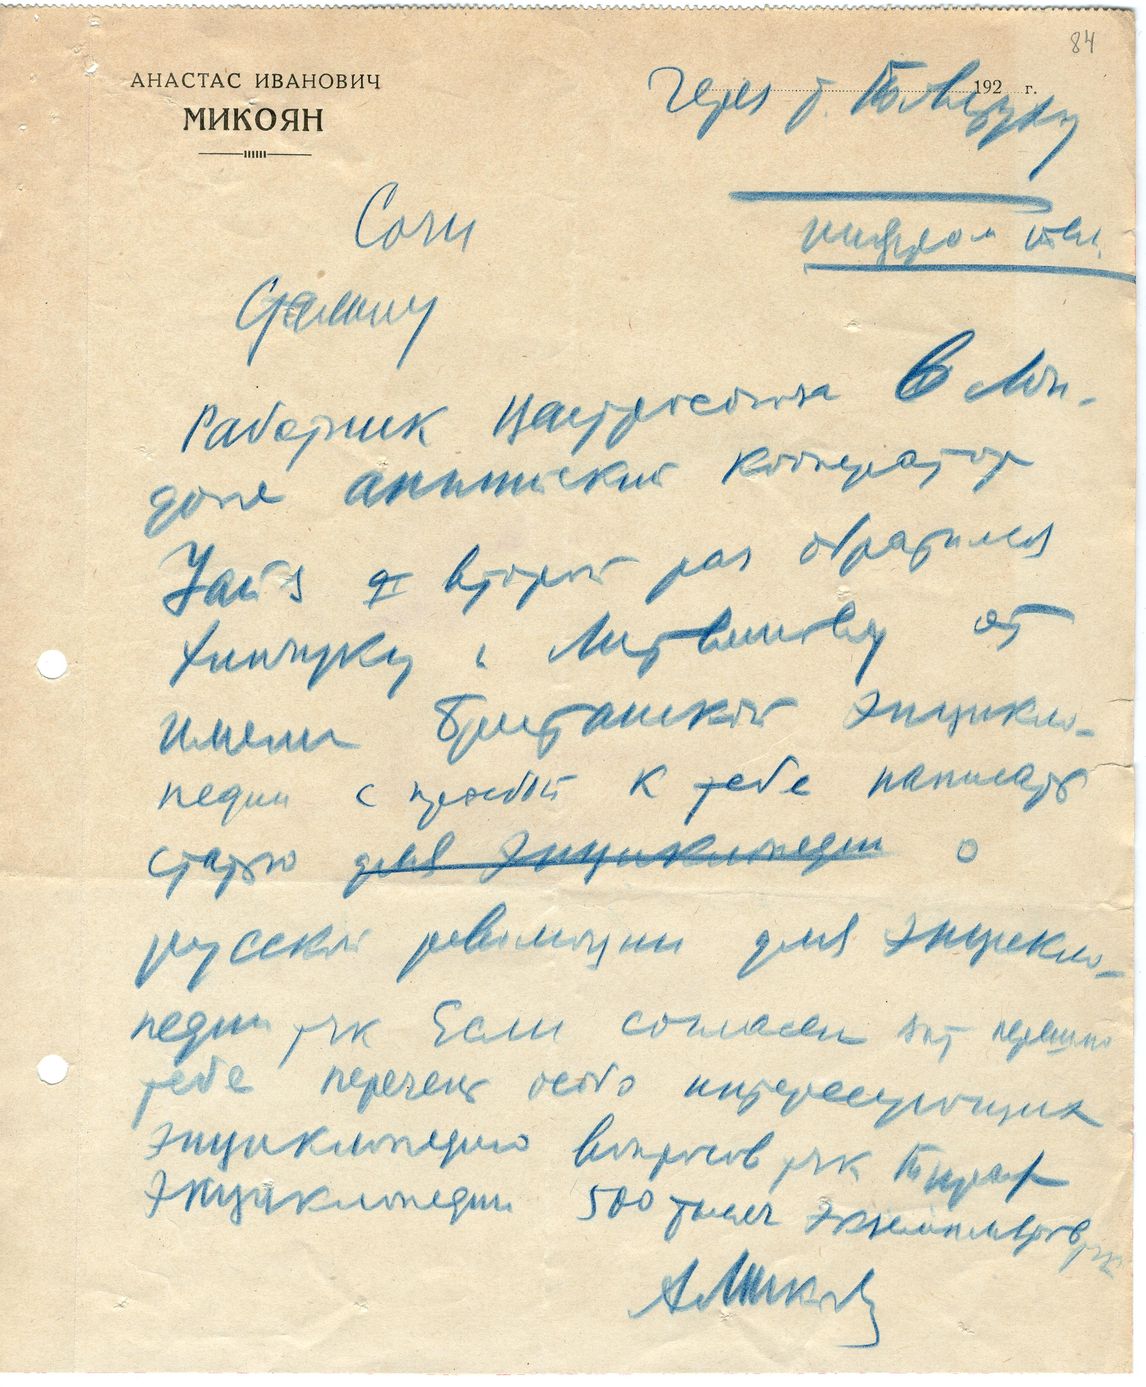 84
АНАСТАС ИВАНОВИЧ
МИКОЯН
192 г.
Через т. Товстуху
шифром
Сочи
Сталину
Работник Центросоюза в Лон-
доне английский кооператор
Уайз второй раз обратился
Хинчуку и Литвинову от
имени Британской энцикло-
педии с просьбой к тебе написать
статью для энциклопедии о
русской революции для энцикло-
педии тчк Если согласен зпт перешлю
тебе перечень особо интересующих
энциклопедию вопросов тчк Тираж
энциклопедии 500 тысяч экземпляров тчк
А Микоян